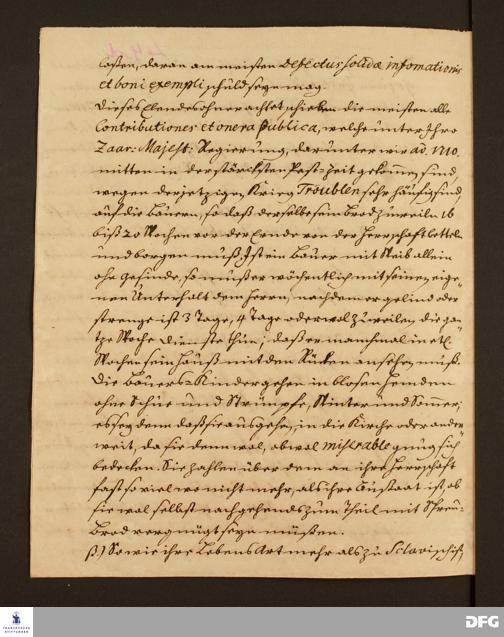 laßen, daran am meisten Defectus solidæ informationis
et boni exempli schuld seyn mag.
Dieses Elendes ohnerachtet schieben die meisten alle
Contributiones et onera publica, welche unter Ihro
Zaar: Majest: Regierung, darunter wir ao. 1710.
mitten in der stärcksten Pest-Zeit gekommen sind,
wegen der jetzigen Krieg Troublen sehr häufig sind,
auf die Bauern, so daß derselbe sein Brod zuweilen 16
biß 20 Wochen vor der Ernde von der Herrschafft betteln
und borgen muß. Ist ein Bauer mit Weib allein
ohne Gesinde, so muß er wöchentlich mit seinen eige-
nen Unterhalt dem Herrn, nachdem er gelind oder
strenge ist 3 Tage, 4 Tage oder wol zuweilen die gan-
tze Woche Dienste thun, daß er manchmal in etl.
Wochen sein Hauß mit dem Rücken ansehen muß.
Die Bauers-Kinder gehen in blosen Hemden
ohne Schue und Strümpfe, Winter und Sommer,
es sey denn daß sie ausgehen, in die Kirche oder ander-
weit, da sie denn wol, obwol miserable gnug sich
bedecken. Sie zahlen über dem an ihre Herrschafft
fast so viel wo nicht mehr, als ihre Aussaat ist, ob
sie wol selbst nachgehends zum Theil mit Spreu-
Brod vergnügt seyn müßen.
β.) So wie ihre Lebens Art mehr als zu Sclavisch ist,
FRANCKESCHE STIFTUNGEN
DFG